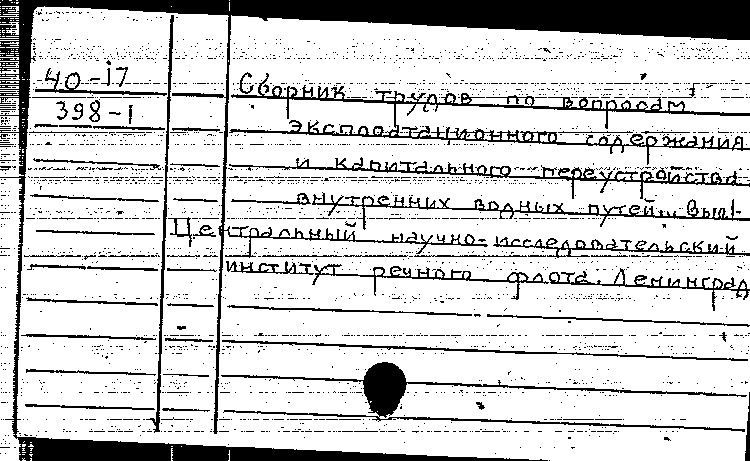 40-17
398-1
Сборник трудов по вопросам
эксплоатационного содержания
и капитального переустройства
внутренних водных путей... Вып.
Центральный научно-исследовательский
институт речного флота. Ленинград